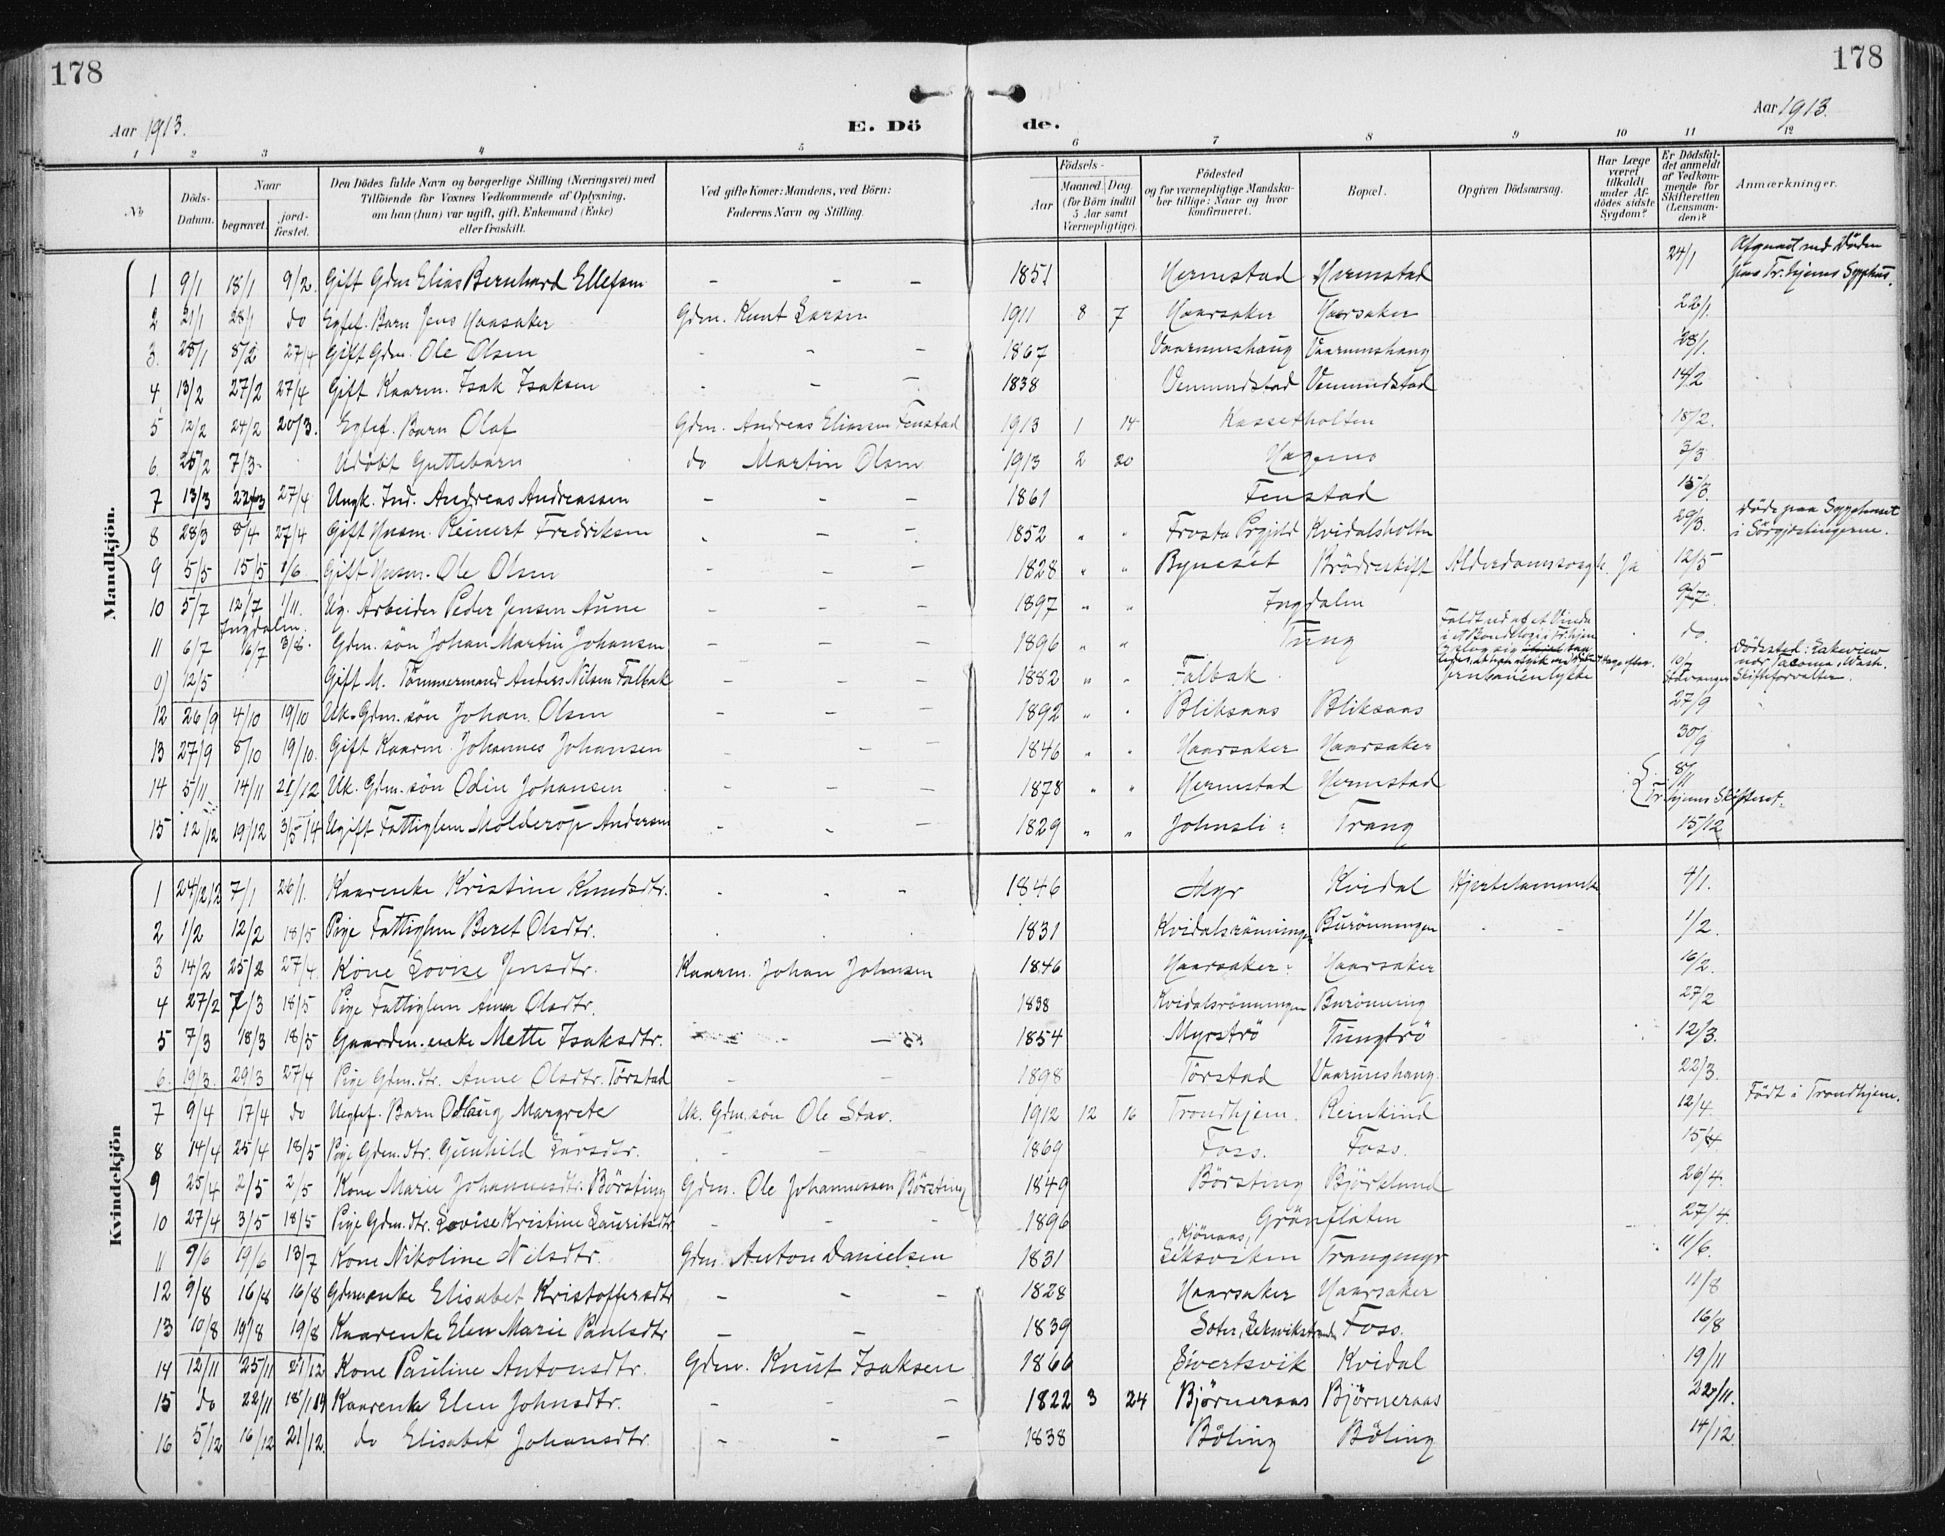 178
178
Aar 1913.
E. Dö
de.
Aar 1913.
1 2 3 4 5 6 7 8 9 10 11 12
No
Döds-Datum.
Naar
begravet.
jord-fæstet.
Den Dödes fulde Navn og borgerlige Stilling (Næringsvei) med
Tilföiende for Voxnes Vedkommende af Oplysning,
om han (hun) var ugift, gift, Enkemand (Enke)
eller fraskilt.
Ved gifte Koner: Mandens, ved Börn:
Faderens Navn og Stilling.
Födsels-
Aar
Maaned. Dag.
(for Börn indtil
5 Aar samt
Værnepligtige).
Födested
og for værnepligtige Mandsku-
ber tillige: Naar og hvor
konfirmeret.
Bopæl.
Opgiven Dödsaarsag.
Har Læge
været
tilkaldt
under Af-
dödes sidste
Sygdom?
Er Dödsfal-
det anmeldt
af Vedkom-
mende for
Skifteretten
(Lensman-
den)?
Anmærkninger.
Mandkjön.
1 9/1 18/1 9/2. Gift Gdm Elias Bernhard Ellefsen – – – 1851 Hermstad Hermstad 24/1
2 21/1 28/1 do Egtef. Barn Jens Haarsaker Gdm. Knut Larsen 1911 8 7 Haarsaker Haarsaker 22/1.
3. 28/1 8/2 27/4 Gift Gdm. Ole Olsen – – – 1867 Vaarumshaug Vaarumshaug 28/1.
4 13/2 27/2 27/4 Gift Kaarm. Isak Isaksen – – – 1838 Vemundstad Vemundstad 14/2
5 12/2 24/2 20/3. Egtef. Barn Olaf Gdm. Andreas Eliassen Fenstad 1913 1 14 Kassetholten 18/2.
6. 25/2 7/3 Udöbt Guttebarn do Martin Olsen 1913 2 20 3/3
7 13/3 22/3 27/4 Ungk. Ind. Andreas Andreassen – – – 1861 Fenstad 15/3.
8 28/3 8/4 27/4 Gift Husm. Reinert Fredriksen – – – 1852 " " Frosta Prgjld Kvidalsholten 29/3. Döde paa Sygehuset
i Sörgjæslingerne.
9 5/5 15/5 1/6 Gift Husm. Ole Olsen – – – 1828 " " Byneset Brödreskift Alderdomssvagh. Ja 12/5
10 5/7 12/7 1/11. Ug. Arbeider Peder Jensen Aune – – – 1897 " " Ingdalen
Ingdalen.
11 6/7 16/7 3/8. Gdm. sön Johan Martin Johansen – – – 1896 " " Tung do.
0) 12/5 Gift M. Tömmermand Anders Nilsen Falbak – – – 1882 " " Falbak Jernbaneulykke 10/7 Dödssted: Lakeview
nær Tacoma, Wash.
Skifteforvalter.
12 26/9 4/10 19/10 Uk. Gdm. sön Johan Olsen – – – 1892 " " Bliksaas Bliksaas 27/9
13 27/9 8/10 19/10. Gift Kaarm. Johannes Johansen – – – 1846 " " Haarsaker Haarsaker 30/9
14 5/11 14/11 21/12 Uk. Gdm. sön Odin Johansen – – – 1878 " " Hermstad Hermstad 8/11
Tr.hjems Skifteret.
15 12/12 19/12 3/5 14 Ugift Fattiglem Andersen – – – 1829 " " Johnsli Trang 15/12
Kvindekjön
1 24/12 12 7/1 26/1. Kaarenke Kristine Knudsdtr. 1846 Myr Kvidal Hjertelammelse 4/1.
2 1/2 12/2 18/5 Pige Fattiglem Beret Olsdtr. 1831 Kvidalsrönningen Burönningen 1/2.
3 14/2 25/2 27/4. Kone Lovise Jensdtr. Kaarm. Johan Johnsen 1846 Haarsaker Haarsaker 16/2.
4 27/2 7/3 18/5 Pige Fattiglem Anna Olsdtr. 1838 Kvidalsrönningen Burönning 27/2
5 7/3 18/3 18/5 Gaardm. enke Mette Isaksdtr. 1854 Myrströ Tungtrö 12/3.
6. 19/3. 29/3 27/4 Pige Gdm. dtr. Anne Olsdtr. Törstad – – 1898 Törstad Vaarumshaug 22/3.
7 9/4 17/4 do Uegtef. Barn Oddlaug Margrete Uk. Gdm. sön Ole Stav. 1912 12 16 Trondhjem. Reinkind 12/4. Födt i Trondhjem.
8 14/4 25/4 18/5 Pige Gdm. dtr. Gunhild Larsdtr. – – – 1869 Foss. Foss. 15/4.
9 25/4 2/5 2/5 Kone Marie Johannesdtr. Börsting Gdm. Ole Johannessen Börsting 1849 Börsting Björklund 26/4.
10 27/4 3/5 18/5 Pige Gdm. dtr. Lovise Kristine Lauritsdtr – – – 1896 Grönflaten 27/4.
11 9/6 19/6 13/7 Kone Nikoline Nilsdtr. Gdm. Anton Danielsen 1831 Trangmyr 11/6.
12 9/8 16/8 16/8 Gdm enke Elisabet Kristoffersdtr – – – 1828 Haarsaker Haarsaker 11/8
13 10/8 19/8 19/8 Kaarenke Elen Marie Paulsdtr – – 1839 Foss. 16/8
14 12/11 25/11 21/12 Kone Pauline Antonsdtr. Gdm. Knut Isaksen 1866 Sivertsvik Kvidal 19/11
15 do 22/11 18/1 14 Kaarenke Elen Johnsdtr. – – – 1822 3 24 Bjørneraas Bjørneraas 22/11.
16 5/12 16/12 21/12. do Elisabet Johansdtr. – – – 1838 Böling Böling 14/12.